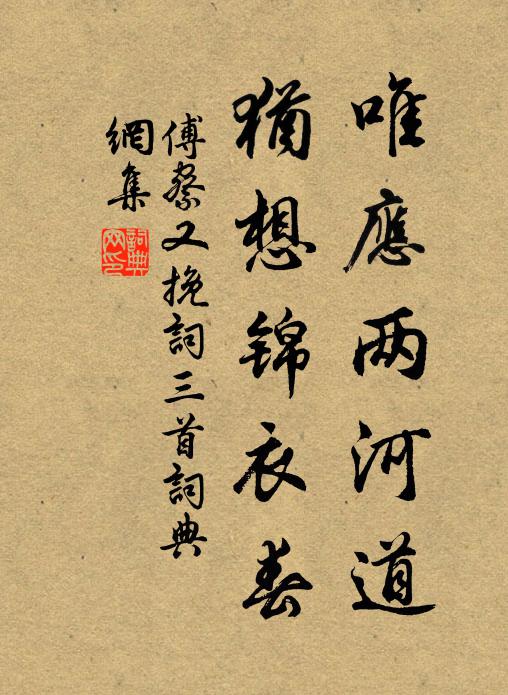 唯應两河道
猶想锦衣春
傅察又挽詞三首詞典
網集
詞典
网印